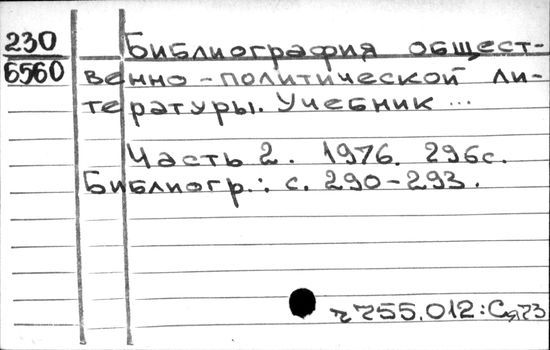 230
6560
Библиография общест-
венно-политической ли-
тературы. Учебник ...
Часть 2. 1976. 296с.
Библиогр.: с. 290-293.
ч755.012:Ся73